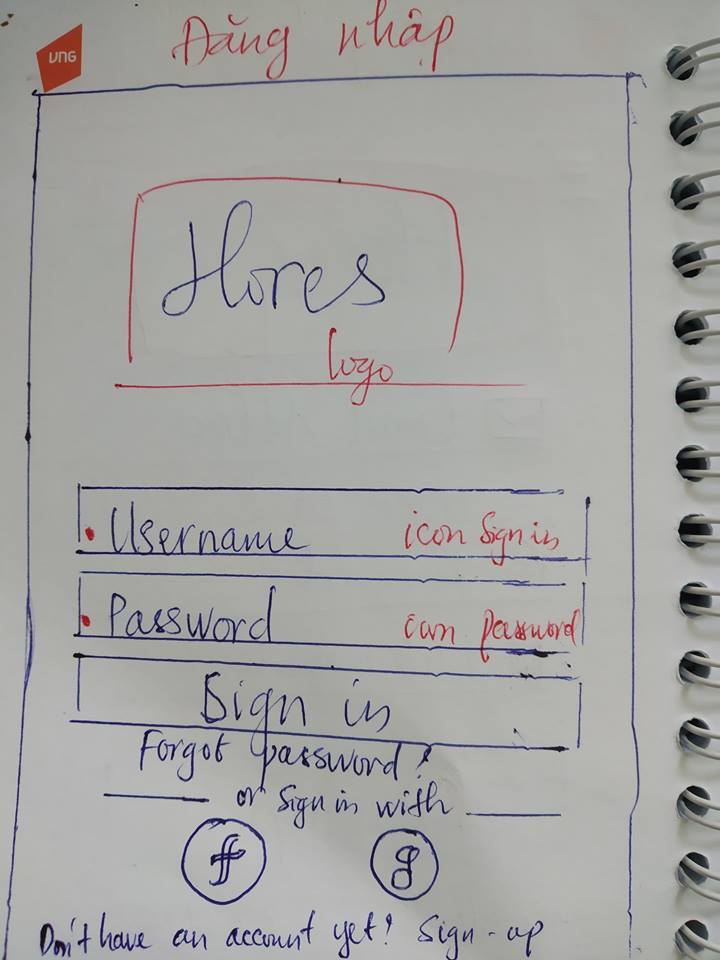 VNG
Đăng nhập
Hores
logo
Username icon Sign in
Password icon password
Sign in
Forgot password?
or Sign in with
f g
Don't have an account yet? Sign-up